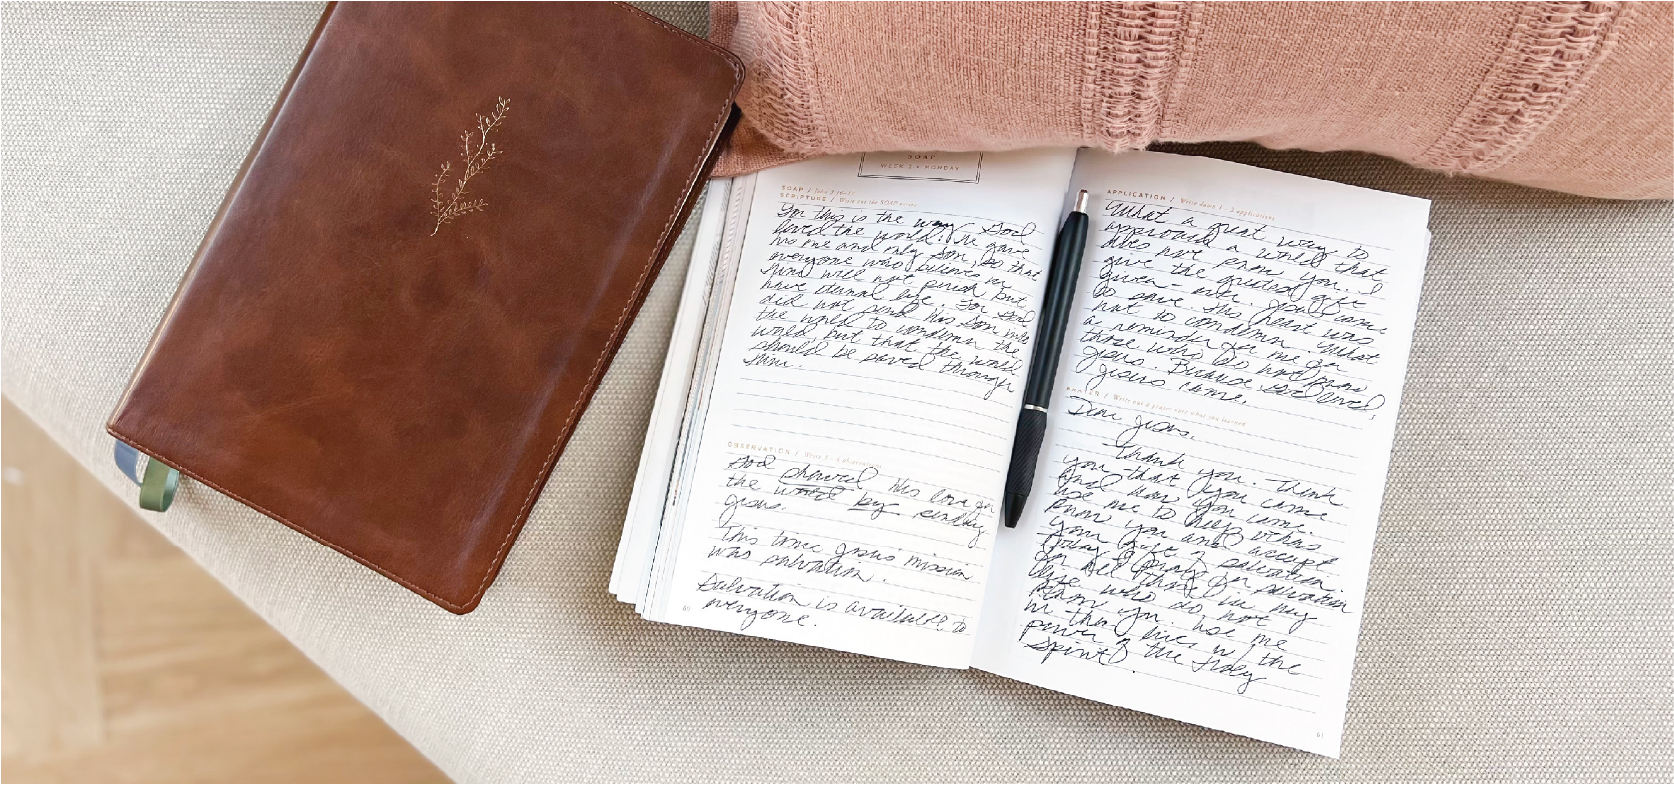 SOAP
WEEK 2 • MONDAY
SOAP / John 3:16-17
SCRIPTURE / Write out the SOAP verses
For this is the way God
loved the world: He gave
his one and only Son, so that
everyone who believes in
Him will not perish but
have eternal life. For God
did not send his Son into
the world to condemn the
world, but that the world
should be saved through
Him.
OBSERVATION / Write 3 - 4 observations
God showed His love for
the world by sending
Jesus.
This time Jesus' mission
was salvation.
Salvation is available to
everyone.
60
APPLICATION / Write down 1 - 2 applications
What a great way to
approach a world that
does not know You. I
have the greatest gift
given - ever. Jesus came
to save. His heart was
not to condemn. What
a reminder for me for
those who do not know
Jesus. Because God loved,
Jesus came.
PRAYER / Write out a prayer over what you learned
Dear Jesus,
Thank you. Thank
you that you came
and how you came.
Use me to help others
know you and accept
your gift of salvation.
Today I pray for salvation
for all that in my
lives who do not
know you. Use me
in their lives in the
power of the Holy
Spirit.
61